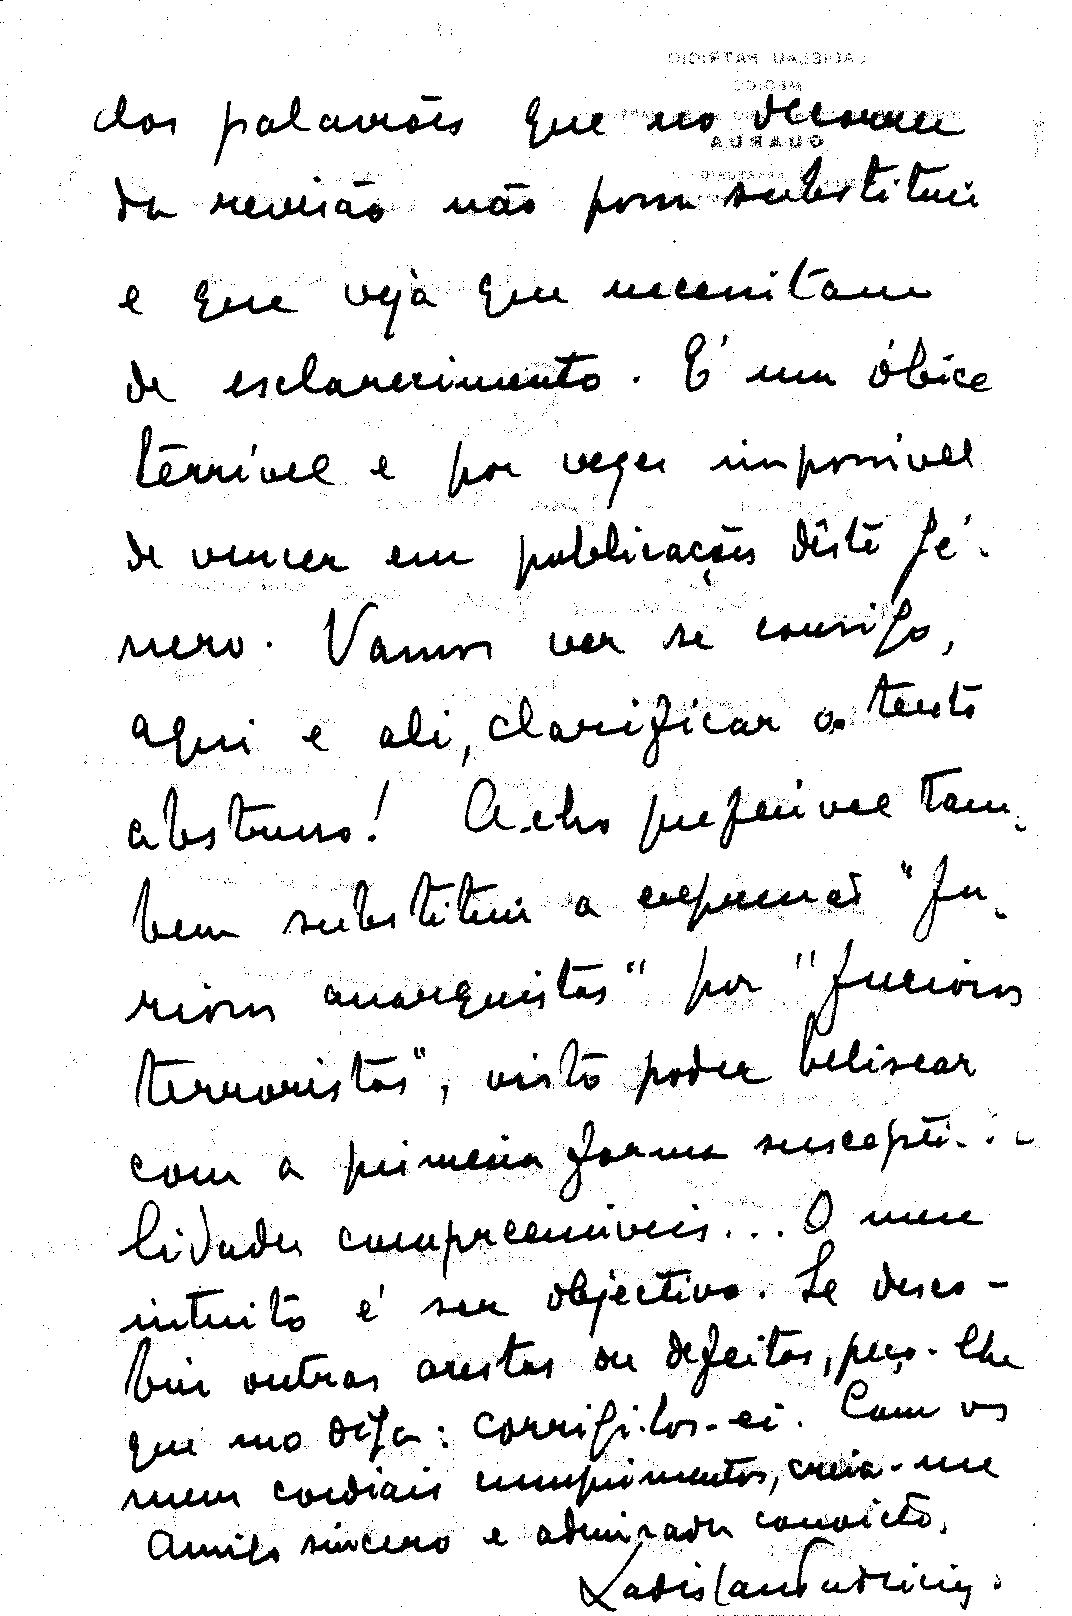 dos palavrões que no decorrer
da revisão não possa substituir
e que veja que necessitam
de esclarecimento. É um óbice
terrível e por vezes impossível
de vencer em publicações dêste gé-
nero. Vamos ver se consigo,
aqui e ali, clarificar o texto
abstruso! Acho preferível tam-
bem substituir a expressão "fu-
riosos anarquistas" por "furiosos
terroristas", visto poder beliscar
com a primeira forma suscepti-
lidades compreensíveis... O meu
intuito é ser objectivo. Se desco-
brir outras arestas ou defeitos, peço-lhe
que mo diga: corrigi-los-ei. Com os
meus cordiais cumprimentos, creia-me
Amigo sincero e admirador convicto,
Ladislau Patrício.